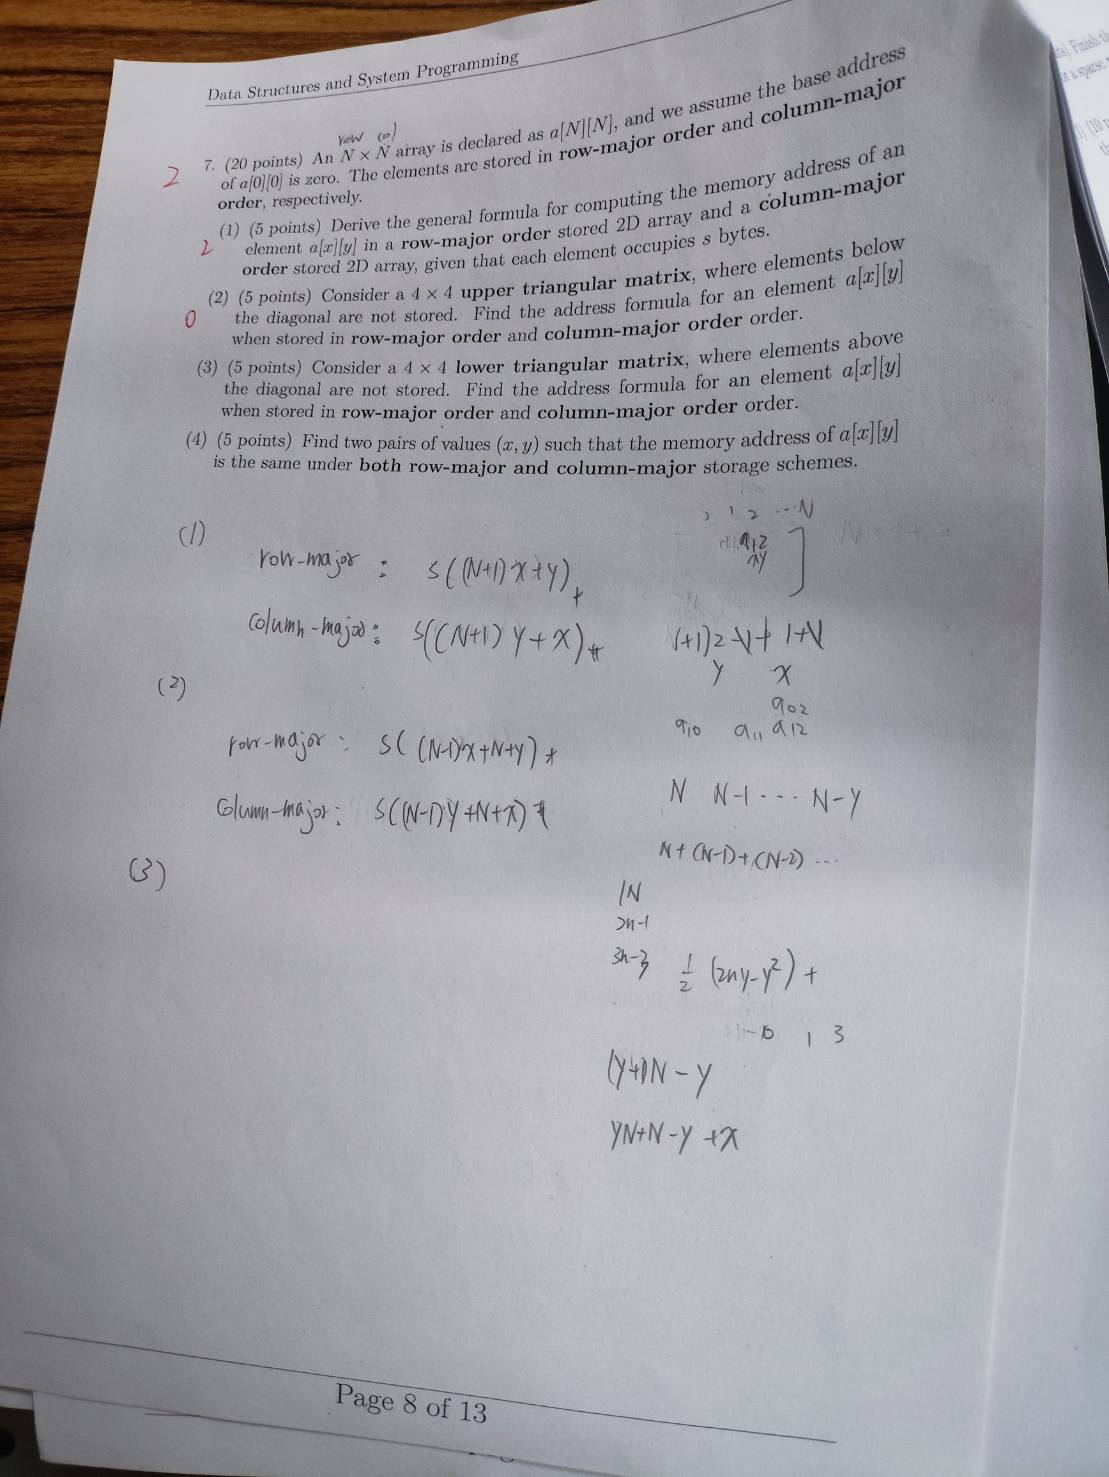 Data Structures and System Programming
row col
2
7. (20 points) An N × N array is declared as a[N][N], and we assume the base address
of a[0][0] is zero. The elements are stored in row-major order and column-major
order, respectively.
(1) (5 points) Derive the general formula for computing the memory address of an
2
element a[x][y] in a row-major order stored 2D array and a column-major
order stored 2D array, given that each element occupies s bytes.
(2) (5 points) Consider a 4 × 4 upper triangular matrix, where elements below
0
the diagonal are not stored. Find the address formula for an element a[x][y]
when stored in row-major order and column-major order order.
(3) (5 points) Consider a 4 × 4 lower triangular matrix, where elements above
the diagonal are not stored. Find the address formula for an element a[x][y]
when stored in row-major order and column-major order order.
(4) (5 points) Find two pairs of values (x, y) such that the memory address of a[x][y]
is the same under both row-major and column-major storage schemes.
1 2 ... N
(1)
a12
xy
row-major : s((N+1)x+y)
column-major : s((N+1)y+x)
y x
(2)
a02
a10 a11 a12
row-major : s((N-1)x+N+y)
column-major : s((N-1)y+N+x)
N N-1 ... N-y
N+(N-1)+(N-2) ...
(3)
1N
2n-1
3n-3 1/2 (2ny-y²) +
1 3
(y+1)N-y
yN+N-y+x
Page 8 of 13